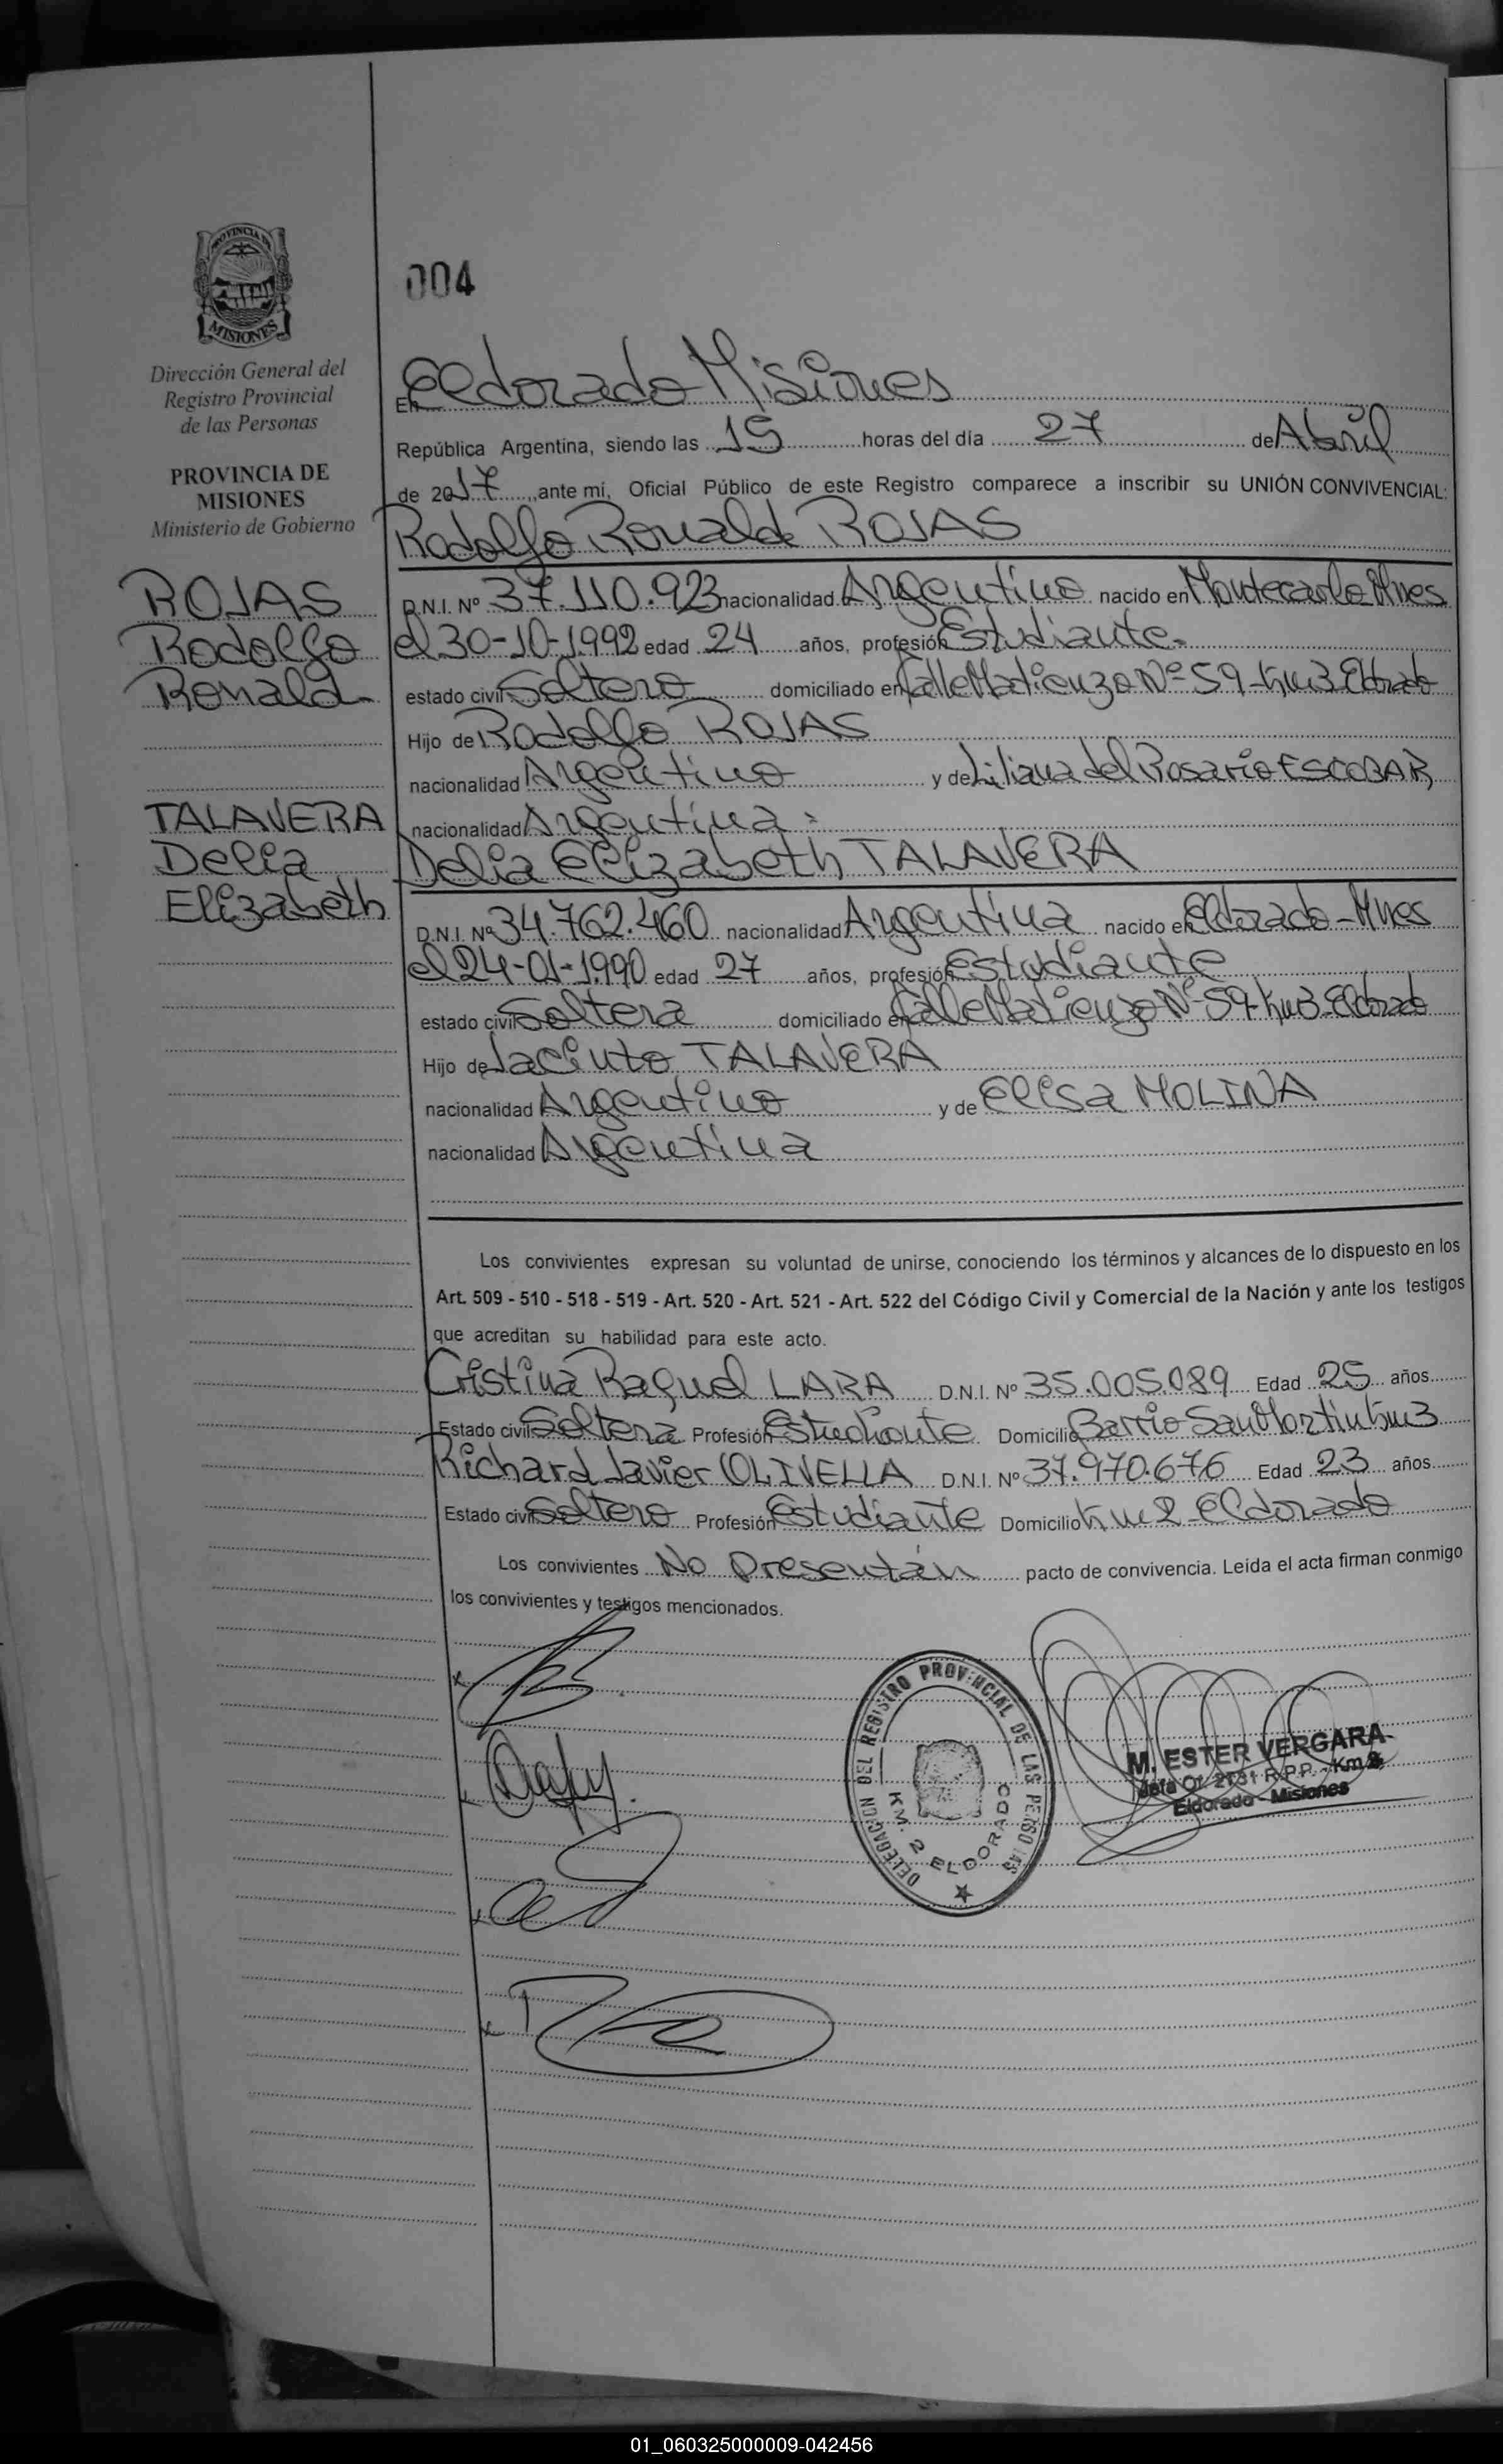 PROVINCIA DE
MISIONES
Dirección General del
Registro Provincial
de las Personas
PROVINCIA DE
MISIONES
Ministerio de Gobierno
ROJAS
Rodolfo
Ronald
TALAVERA
Delia
Elizabeth
004
En Eldorado Misiones
República Argentina, siendo las 15 horas del día 27 de Abril
de 2017, ante mí, Oficial Público de este Registro comparece a inscribir su UNIÓN CONVIVENCIAL:
Rodolfo Ronald ROJAS
D.N.I. Nº 37.110.923 nacionalidad Argentino nacido en Montecarlo Mnes
el 30-10-1992 edad 24 años, profesión Estudiante
estado civil Soltero domiciliado en Calle Matienzo Nº 59-Km3 Eldorado
Hijo de Rodolfo ROJAS
nacionalidad Argentino y de Liliana del Rosario ESCOBAR,
nacionalidad Argentina
Delia Elizabeth TALAVERA
D.N.I. Nº 34.762.460 nacionalidad Argentina nacido en Eldorado-Mnes
el 24-01-1990 edad 27 años, profesión Estudiante
estado civil Soltera domiciliado en Calle Matienzo Nº 59-Km3-Eldorado
Hijo de Jacinto TALAVERA
nacionalidad Argentino y de Elisa MOLINA
nacionalidad Argentina
Los convivientes expresan su voluntad de unirse, conociendo los términos y alcances de lo dispuesto en los
Art. 509 - 510 - 518 - 519 - Art. 520 - Art. 521 - Art. 522 del Código Civil y Comercial de la Nación y ante los testigos
que acreditan su habilidad para este acto.
Cristina Raquel LARA D.N.I. Nº 35.005.089 Edad 25 años
Estado civil Soltera Profesión Estudiante Domicilio Barrio San Martin Km3
Richard Javier OLIVELLA D.N.I. Nº 37.970.676 Edad 23 años
Estado civil Soltero Profesión Estudiante Domicilio Km 2 Eldorado
Los convivientes No Presentán pacto de convivencia. Leida el acta firman conmigo
los convivientes y testigos mencionados.
DELEGACION DEL REGISTRO PROVINCIAL DE LAS PERSONAS
KM. 2 ELDORADO
M. ESTER VERGARA
Jefa Of. 2131 R.P.P. - Km 2
Eldorado - Misiones
01_060325000009-042456